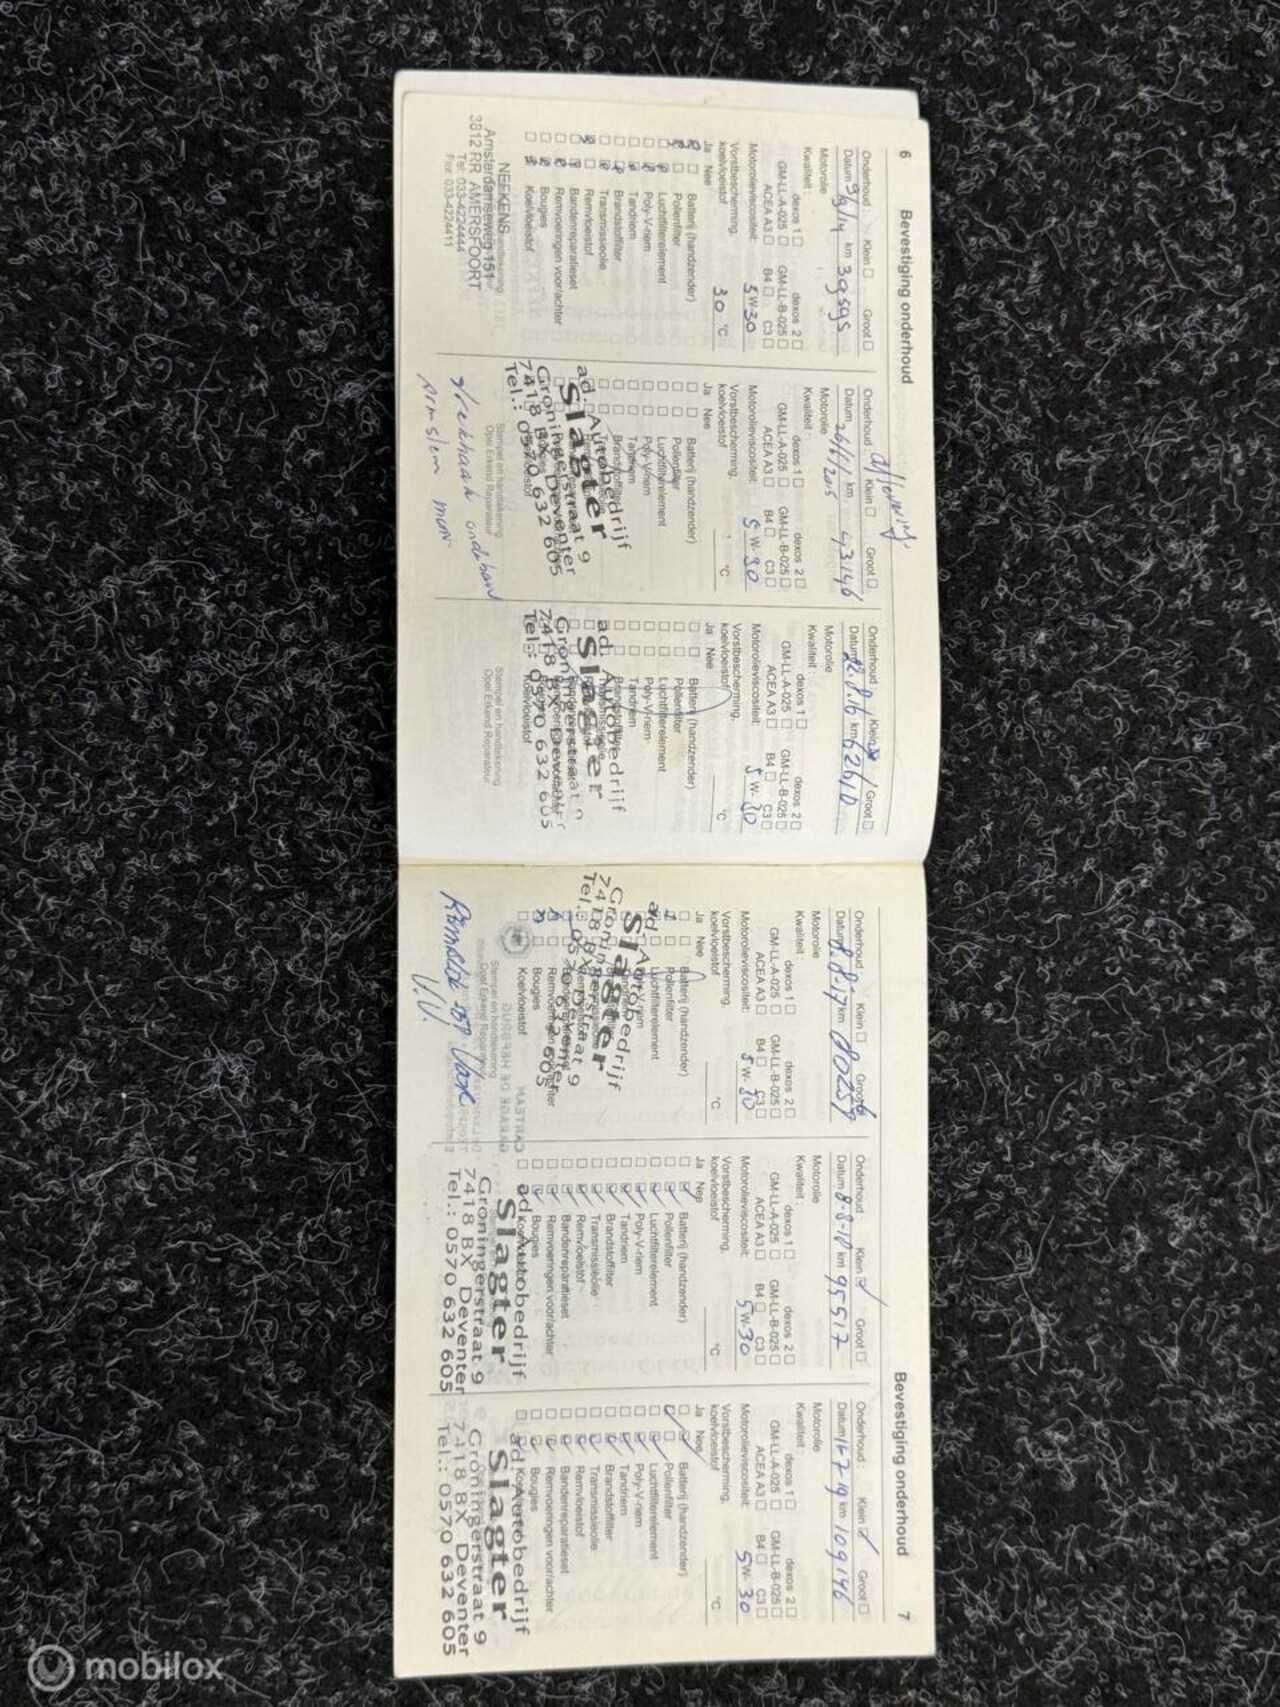 6
Bevestiging onderhoud
Onderhoud: Klein Groot
Datum 9/1/14 km 39595
Motorolie
Kwaliteit: dexos 1 dexos 2
GM-LL-A-025 GM-LL-B-025
ACEA A3 B4 C3
Motorolieviscositeit: 5W30
Vorstbescherming,
koelvloeistof 30 °C
Ja Nee
Batterij (handzender)
Pollenfilter
Luchtfilterelement
Poly-V-riem
Tandriem
Brandstoffilter
Transmissieolie
Remvloeistof
Bandenreparatieset
Remvoeringen voor/achter
Bougies
Koelvloeistof
NEFKENS
Amsterdamseweg 151
3812 RR AMERSFOORT
Tel. 033-4224444
Fax: 033-4224411
aflevering
Onderhoud: Klein Groot
Datum 26/6/2015 km 43146
Motorolie
Kwaliteit: dexos 1 dexos 2
GM-LL-A-025 GM-LL-B-025
ACEA A3 B4 C3
Motorolieviscositeit: 5W-30
Vorstbescherming,
koelvloeistof °C
Ja Nee
Batterij (handzender)
Pollenfilter
Luchtfilterelement
Poly-V-riem
Tandriem
Brandstoffilter
ad. Autobedrijf
Slagter
Groningerstraat 9
7418 BX Deventer
Tel.: 0570 632 605
Stempel en handtekening
Opel Erkend Reparateur
Trekhaak onderhoud
Onderhoud: Klein Groot
Datum 22.8.16 km 62610
Motorolie
Kwaliteit: dexos 1 dexos 2
GM-LL-A-025 GM-LL-B-025
ACEA A3 B4 C3
Motorolieviscositeit: 5W-30
Vorstbescherming,
koelvloeistof °C
Ja Nee
Batterij (handzender)
Pollenfilter
Luchtfilterelement
Poly-V-riem
Tandriem
ad. Autobedrijf
Slagter
Groningerstraat 9
7418 BX Deventer
Tel.: 0570 632 605
Stempel en handtekening
Opel Erkend Reparateur
Bevestiging onderhoud
7
Onderhoud: Klein Groot
Datum 8.8-17 km 80259
Motorolie
Kwaliteit: dexos 1 dexos 2
GM-LL-A-025 GM-LL-B-025
ACEA A3 B4 C3
Motorolieviscositeit: 5W-30
Vorstbescherming,
koelvloeistof °C
Ja Nee
Batterij (handzender)
Pollenfilter
Luchtfilterelement
ad. Autobedrijf
Slagter
Groningerstraat 9
7418 BX Deventer
Tel.: 0570 632 605
Remvoeringen voor/achter
Bougies
Koelvloeistof
Stempel en handtekening
Opel Erkend Reparateur
Onderhoud: Klein Groot
Datum 8-8-18 km 95517
Motorolie
Kwaliteit: dexos 1 dexos 2
GM-LL-A-025 GM-LL-B-025
ACEA A3 B4 C3
Motorolieviscositeit: 5W-30
Vorstbescherming,
koelvloeistof °C
Ja Nee
Batterij (handzender)
Pollenfilter
Luchtfilterelement
Poly-V-riem
Tandriem
Brandstoffilter
Transmissieolie
Remvloeistof
Bandenreparatieset
Remvoeringen voor/achter
Bougies
Koelvloeistof
ad. Autobedrijf
Slagter
Groningerstraat 9
7418 BX Deventer
Tel.: 0570 632 605
Onderhoud: Klein Groot
Datum 11-7-19 km 109146
Motorolie
Kwaliteit: dexos 1 dexos 2
GM-LL-A-025 GM-LL-B-025
ACEA A3 B4 C3
Motorolieviscositeit: 5W-30
Vorstbescherming,
koelvloeistof °C
Ja Nee
Batterij (handzender)
Pollenfilter
Luchtfilterelement
Poly-V-riem
Tandriem
Brandstoffilter
Transmissieolie
Remvloeistof
Bandenreparatieset
Remvoeringen voor/achter
Bougies
Koelvloeistof
ad. Autobedrijf
Slagter
Groningerstraat 9
7418 BX Deventer
Tel.: 0570 632 605
mobilox